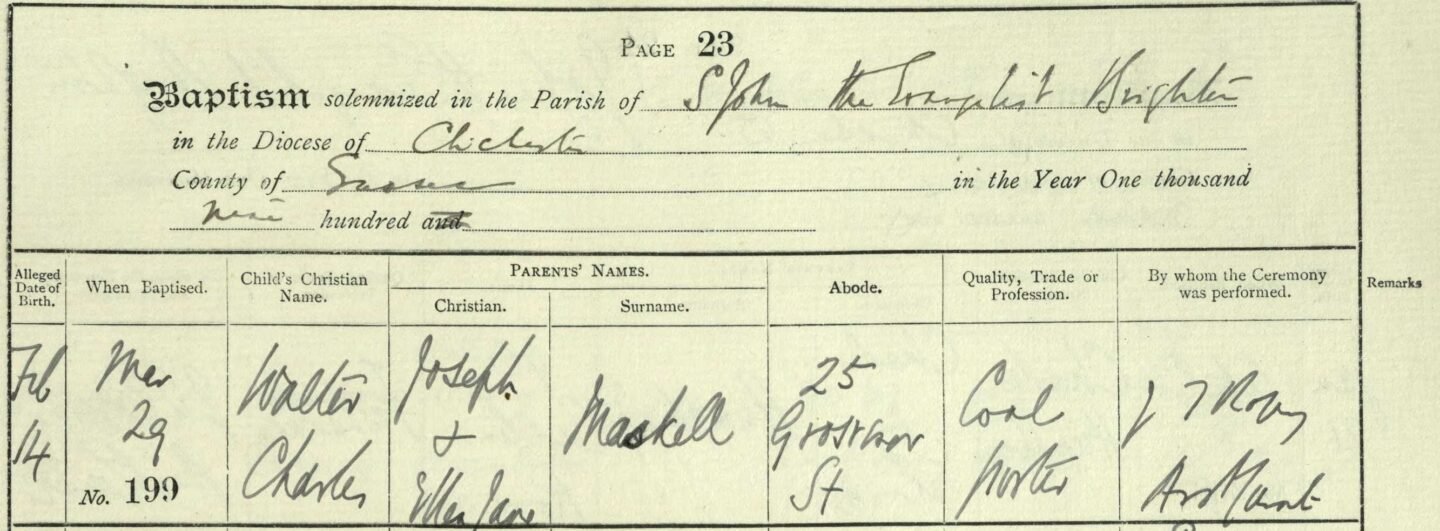 PAGE 23
Baptism solemnized in the Parish of S John the Evangelist Brighton
in the Diocese of Chichester
County of Sussex in the Year One thousand
nine hundred and
Alleged Date of Birth.
When Baptised.
Child's Christian Name.
PARENTS' NAMES.
Christian.
Surname.
Abode.
Quality, Trade or Profession.
By whom the Ceremony was performed.
Remarks
Feb
14
Mar
29
No. 199
Walter
Charles
Joseph
+
Ellen Jane
Maskell
25
Grosvenor
St
Coal
porter